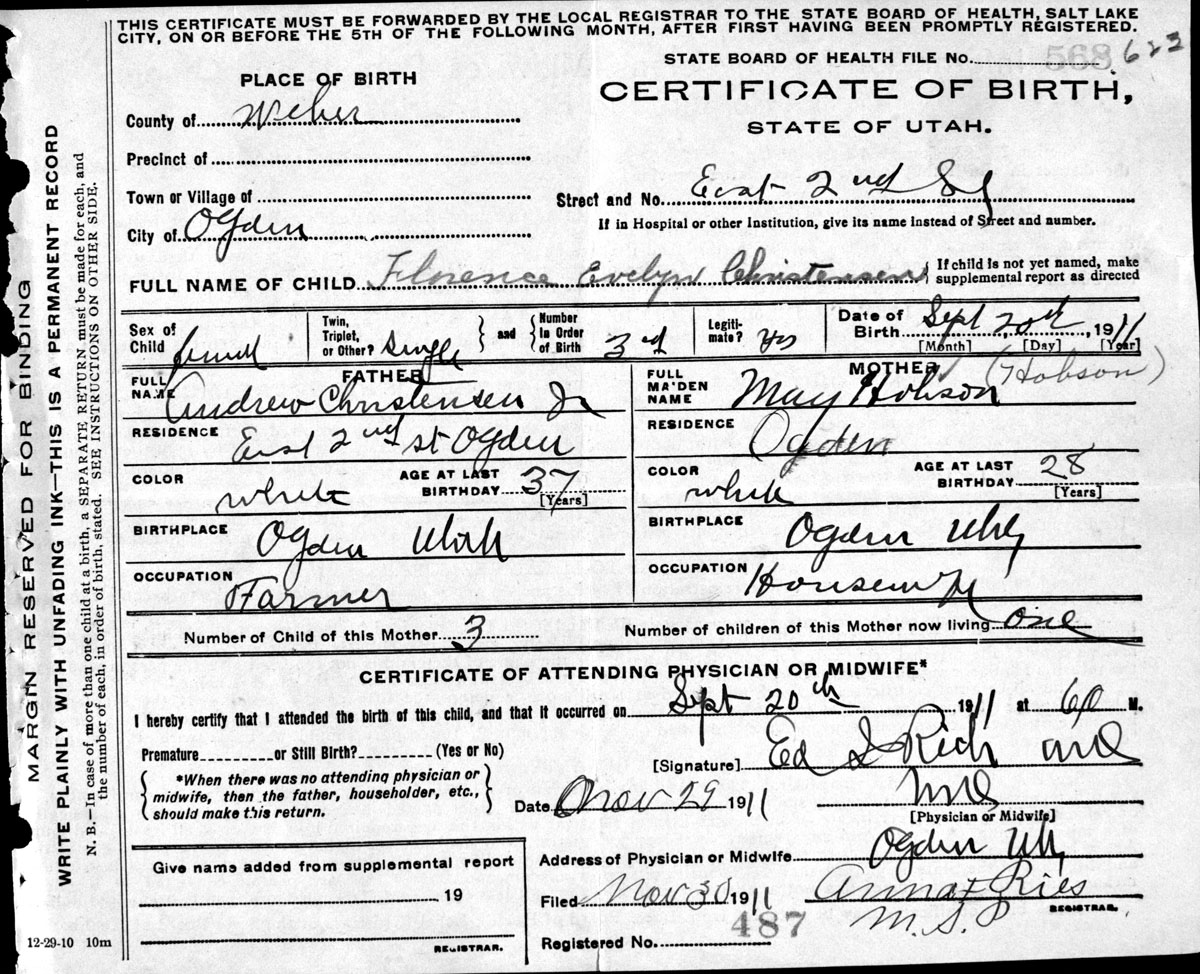 THIS CERTIFICATE MUST BE FORWARDED BY THE LOCAL REGISTRAR TO THE STATE BOARD OF HEALTH, SALT LAKE
CITY, ON OR BEFORE THE 5TH OF THE FOLLOWING MONTH, AFTER FIRST HAVING BEEN PROMPTLY REGISTERED.
STATE BOARD OF HEALTH FILE No. 568 623
PLACE OF BIRTH
CERTIFICATE OF BIRTH,
STATE OF UTAH.
County of Weber
Precinct of
Town or Village of
Street and No. East 2nd St
City of Ogden
If in Hospital or other Institution, give its name instead of Street and number.
FULL NAME OF CHILD Florence Evelyn Christensen { If child is not yet named, make
supplemental report as directed
Sex of Child
Twin, Triplet, or Other? Single } and { Number In Order of Birth 3rd
Legiti-mate? Yes
Date of Birth Sept 20th, 1911
[Month] [Day] [Year]
FATHER
FULL NAME Andrew Christensen Jr
RESIDENCE East 2nd st Ogden
COLOR white AGE AT LAST BIRTHDAY 37 [Years]
BIRTHPLACE Ogden Utah
OCCUPATION Farmer
MOTHER (Hobson)
FULL MAIDEN NAME May Hobson
RESIDENCE Ogden
COLOR white AGE AT LAST BIRTHDAY 28 [Years]
BIRTHPLACE Ogden
OCCUPATION Housewife
Number of Child of this Mother 3 Number of children of this Mother now living one
CERTIFICATE OF ATTENDING PHYSICIAN OR MIDWIFE*
I hereby certify that I attended the birth of this child, and that it occurred on Sept 20th 1911 at M.
Premature or Still Birth? (Yes or No)
[Signature] Ed I Rich
{ *When there was no attending physician or
midwife, then the father, householder, etc.,
should make this return. }
Date Nov 29 1911
[Physician or Midwife]
Give name added from supplemental report
19
REGISTRAR.
Address of Physician or Midwife Ogden
Filed Nov 30 1911 Anna F Ries
REGISTRAR.
Registered No. 487
12-29-10 10m
MARGIN RESERVED FOR BINDING
WRITE PLAINLY WITH UNFADING INK—THIS IS A PERMANENT RECORD
N. B.—In case of more than one child at a birth, a SEPARATE RETURN must be made for each, and
the number of each, in order of birth, stated. SEE INSTRUCTIONS ON OTHER SIDE.